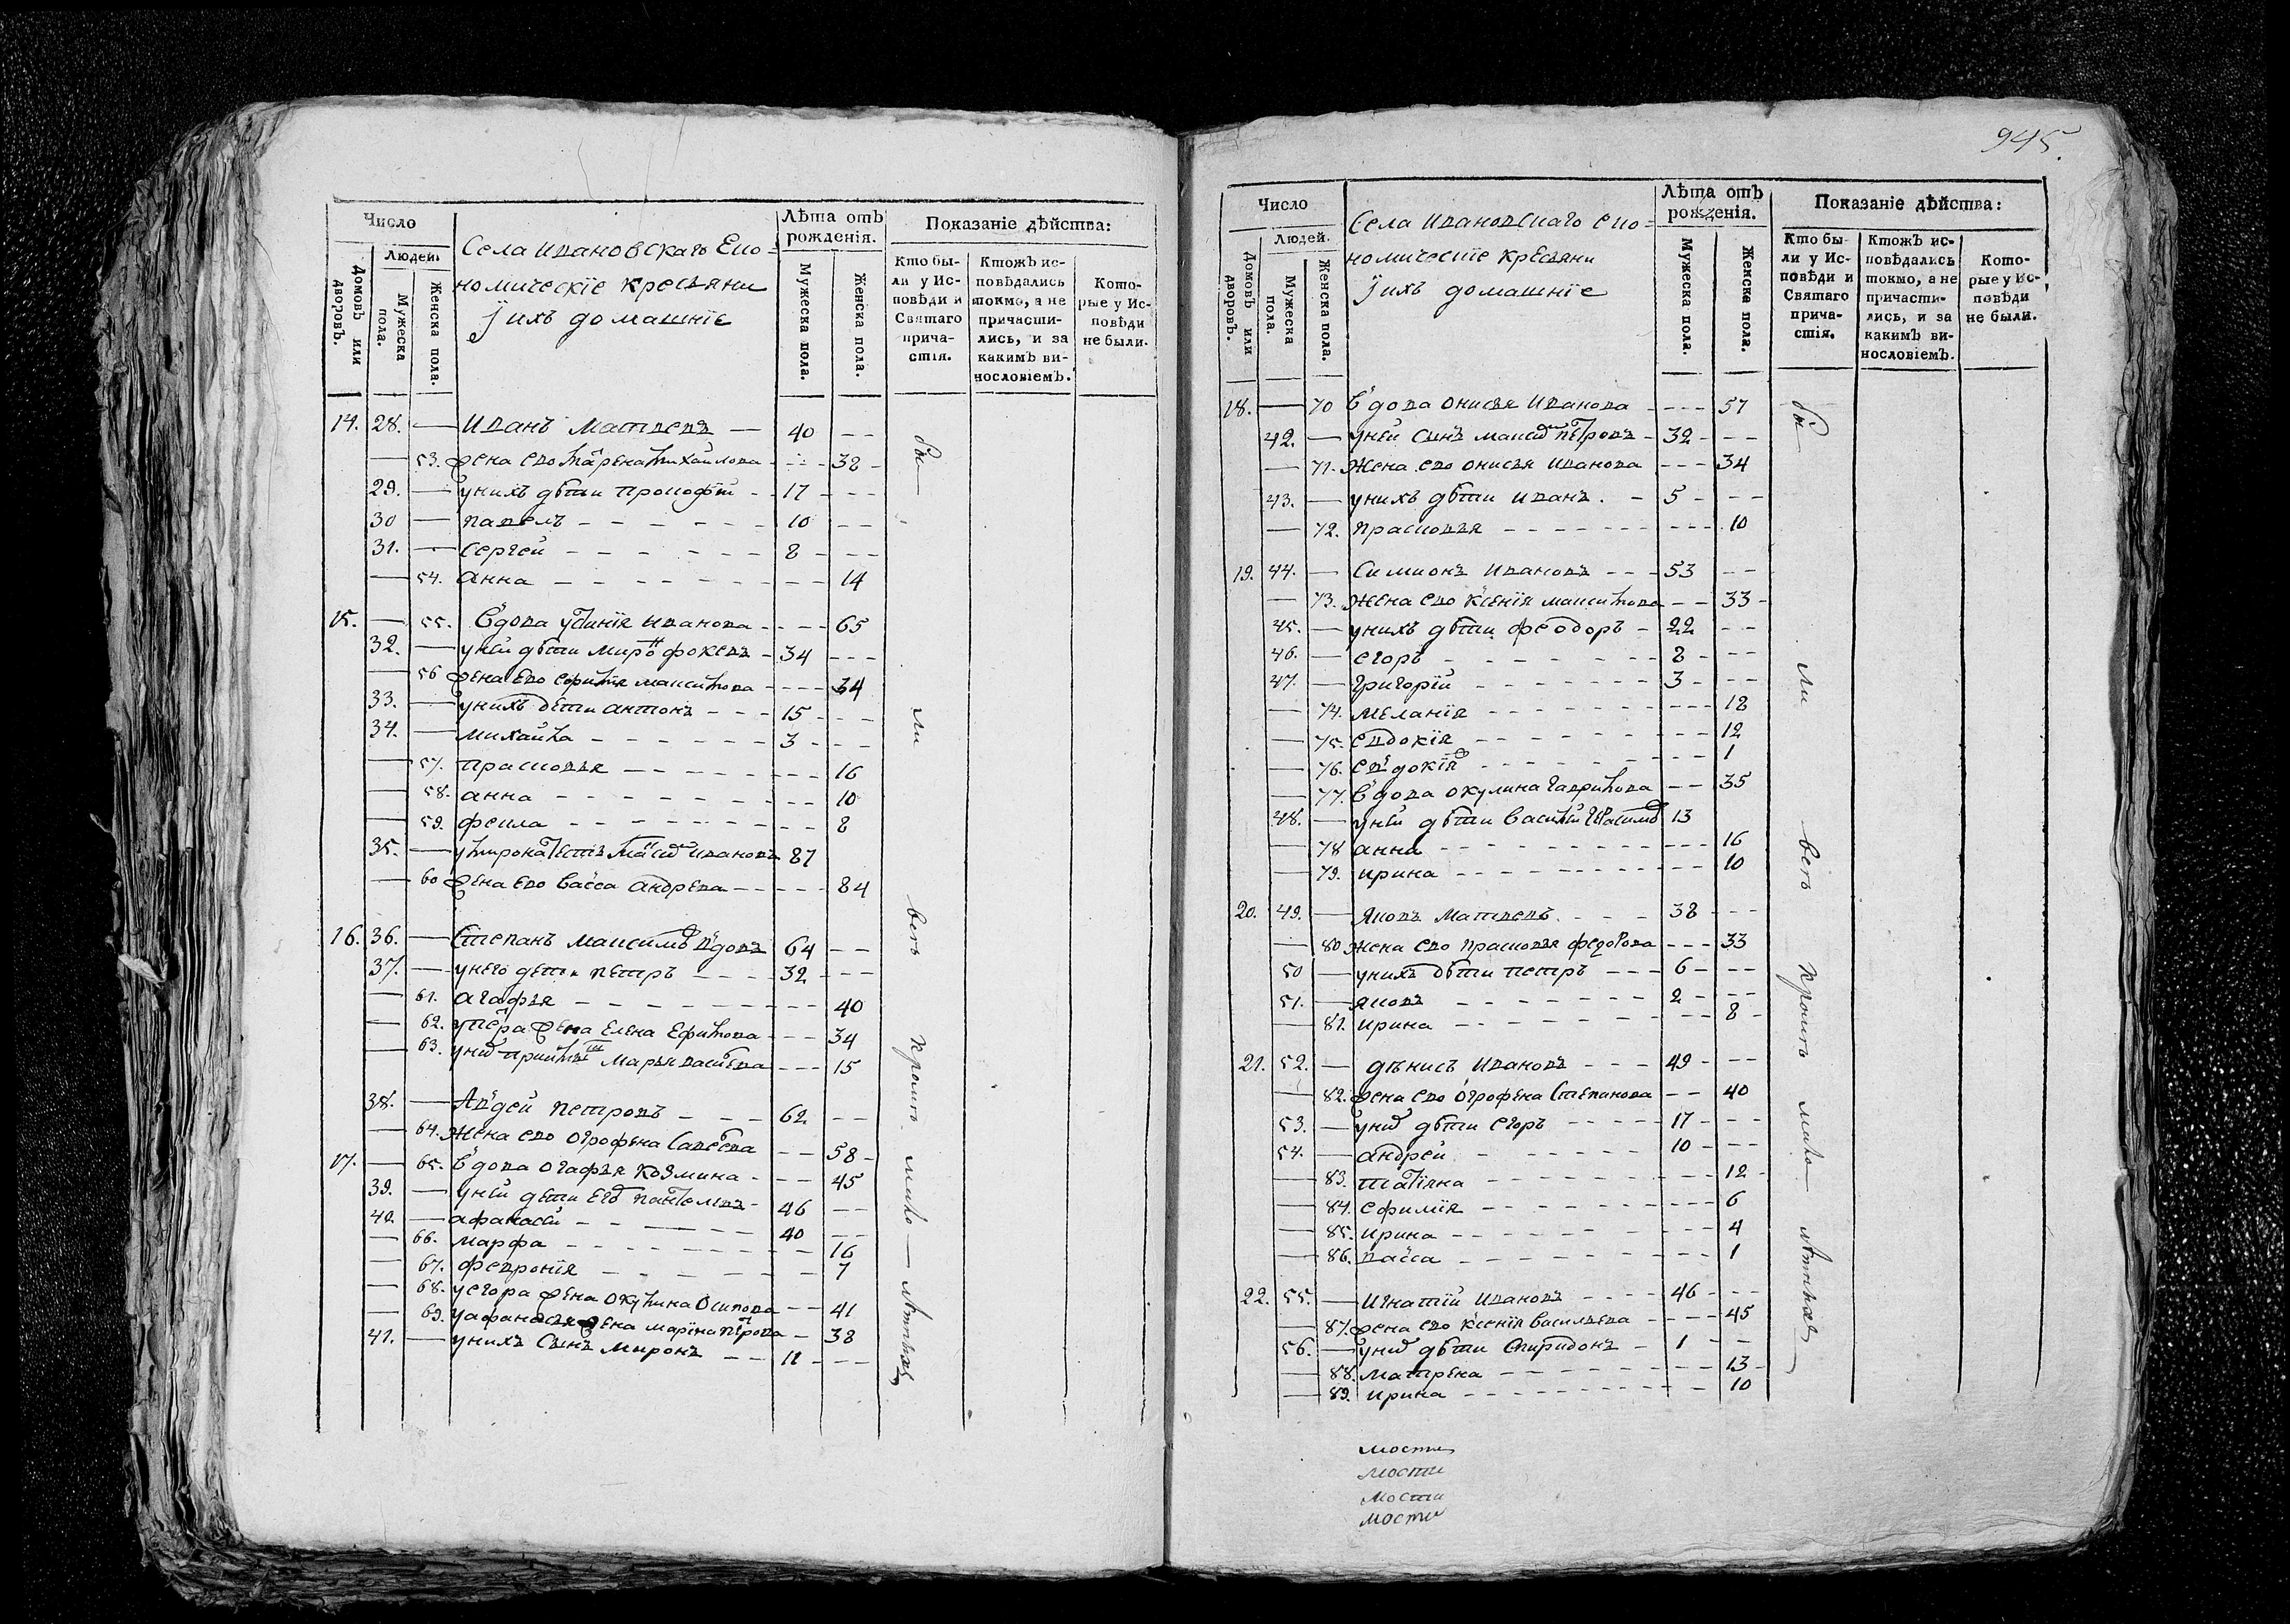 Число
Людей.
Домовъ или дворовъ.
Мужеска пола.
Женска пола.
Села Ивановскаго Еко=
номическіе крестьяни
и ихъ домашніе
Лѣта отъ рожденія.
Мужеска пола.
Женска пола.
Показаніе дѣйства:
Кто бы-
ли у Ис-
повѣди и
Святаго
прича-
стія.
Ктожъ ис-
повѣдались
токмо, а не
причасти-
лись, и за
какимъ ви-
нословіемъ.
Кото-
рые у Ис-
повѣди
не были.
14. 28. — Иванъ Матвевъ — 40 - -
— 53. жена ево Михаилова - - - 38 -
29. — унихъ дѣти Прокофѣи - - 17 - - -
30 — павелъ - - - - - - 10 - -
31. — Сергеи - - - - - - 8 - - -
— 54. анна - - - - - - - - - 14
15. — 55. Вдова устинія Иванова - - - - 65
32. — уней дѣти Миронъ фокевъ - 34 - - -
— 56 жена ево ефимія максимова - - - - 34
33. — унихъ дѣти антонъ - - - 15 - - -
34. — михаила - - - - - - 3 - - -
— 57. прасковья - - - - - - - - 16
— 58. анна - - - - - - - - 10
— 59. фекла - - - - - - - - 8
35. — умирона тесть Ивановъ 87
— 60 жена ево Васса андрева - - - - - 84
16. 36. — Степанъ Максимовъ вдовъ 64 - -
37. — унего дети петръ - - - - 32 - - -
— 61. агафья - - - - - - - - - 40
— 62. упетра жена Елена Ефимова - - - 34
— 63. Марья - - - 15
38. — Авдей петровъ - - - 62 - -
— 64. Жена ево огрофена Савѣева - - 58 -
17. — 65. Вдова огафья козмина - - - 45
39. — уней дети Егоръ - 46 - -
40. — афанасей - - - - 40 - -
— 66. марфа - - - - - - - - 16
— 67. февронія - - - - - - - 7
— 68. уегора жена окулина Осипова - - 41
— 69. уафанасья жена марина петрова - 38
41. — унихъ Сынъ миронъ - - - 11 - - -
бы— ли всѣ
945.
Число
Людей.
Домовъ или дворовъ.
Мужеска пола.
Женска пола.
Села Ивановскаго еко=
номическіе кресьяни
и ихъ домашніе
Лѣта отъ
рожденія.
Мужеска пола.
Женска пола.
Показаніе дѣйства:
Кто бы-
ли у Ис-
повѣди и
Святаго
прича-
стія.
Ктожъ ис-
повѣдались
токмо, а не
причасти-
лись, и за
какимъ ви-
нословіемъ.
Кото-
рые у Ис-
повѣди
не были.
18. — 70 Вдова онисья Иванова - - - - 57
42. — уней Сынъ петровъ - 32 - - -
— 71. Жена ево онисья Иванова - - - 34
43. — унихъ дѣти Иванъ. - 5 - - -
— 72. прасковья - - - - - - - - - - 10
19. 44. — Симионъ Ивановъ - - - 53 - -
— 73. Жена ево ксенія максимова - - 33 -
45. — унихъ дѣти феодоръ - 22 - -
46. — егоръ - - - - - - 8 - - -
47. — григорій - - - - - - 3 - - -
— 74. меланія - - - - - - - - - 18
— 75. евдокія - - - - - - - - 12
— 76. евдокія - - - - - - - 1
— 77. Вдова окулина гаврилова - - 35
48. — уней дѣти Василій 13
— 78 анна - - - - - - - - - 16
— 79. ирина - - - - - - - - - 10
20. 49. — Яковъ Матвевъ. - - - 38 - - -
— 80. жена ево прасковья федорова - - - 33
50 — унихъ дѣти петръ - - - 6 - - -
51. — яковъ - - - - - - - 2 - - -
— 81. ирина - - - - - - - - 8 -
21. 52. — дѣнисъ Ивановъ - - - 49 - - -
— 82. жена ево огрофена Степанова - - 40
53. — дѣти егоръ - - - - - 17 - - -
54. — андрей - - - - - - 10 - - -
— 83. татіяна - - - - - - - - 12 -
— 84. ефимія - - - - - - - - - 6
— 85. ирина - - - - - - - - - 4
— 86. васса - - - - - - - - - 1
22. 55. — Игнатій Ивановъ - - - - 46 - - -
— 87. жена ево ксенія васильева - - - - 45
56. — дѣти Спиридонъ - 1 - -
— 88. матрена - - - - - - - - 13 -
— 89. ирина - - - - - - - - - 10
бы— ли всѣ
мости
мости
мости
мости